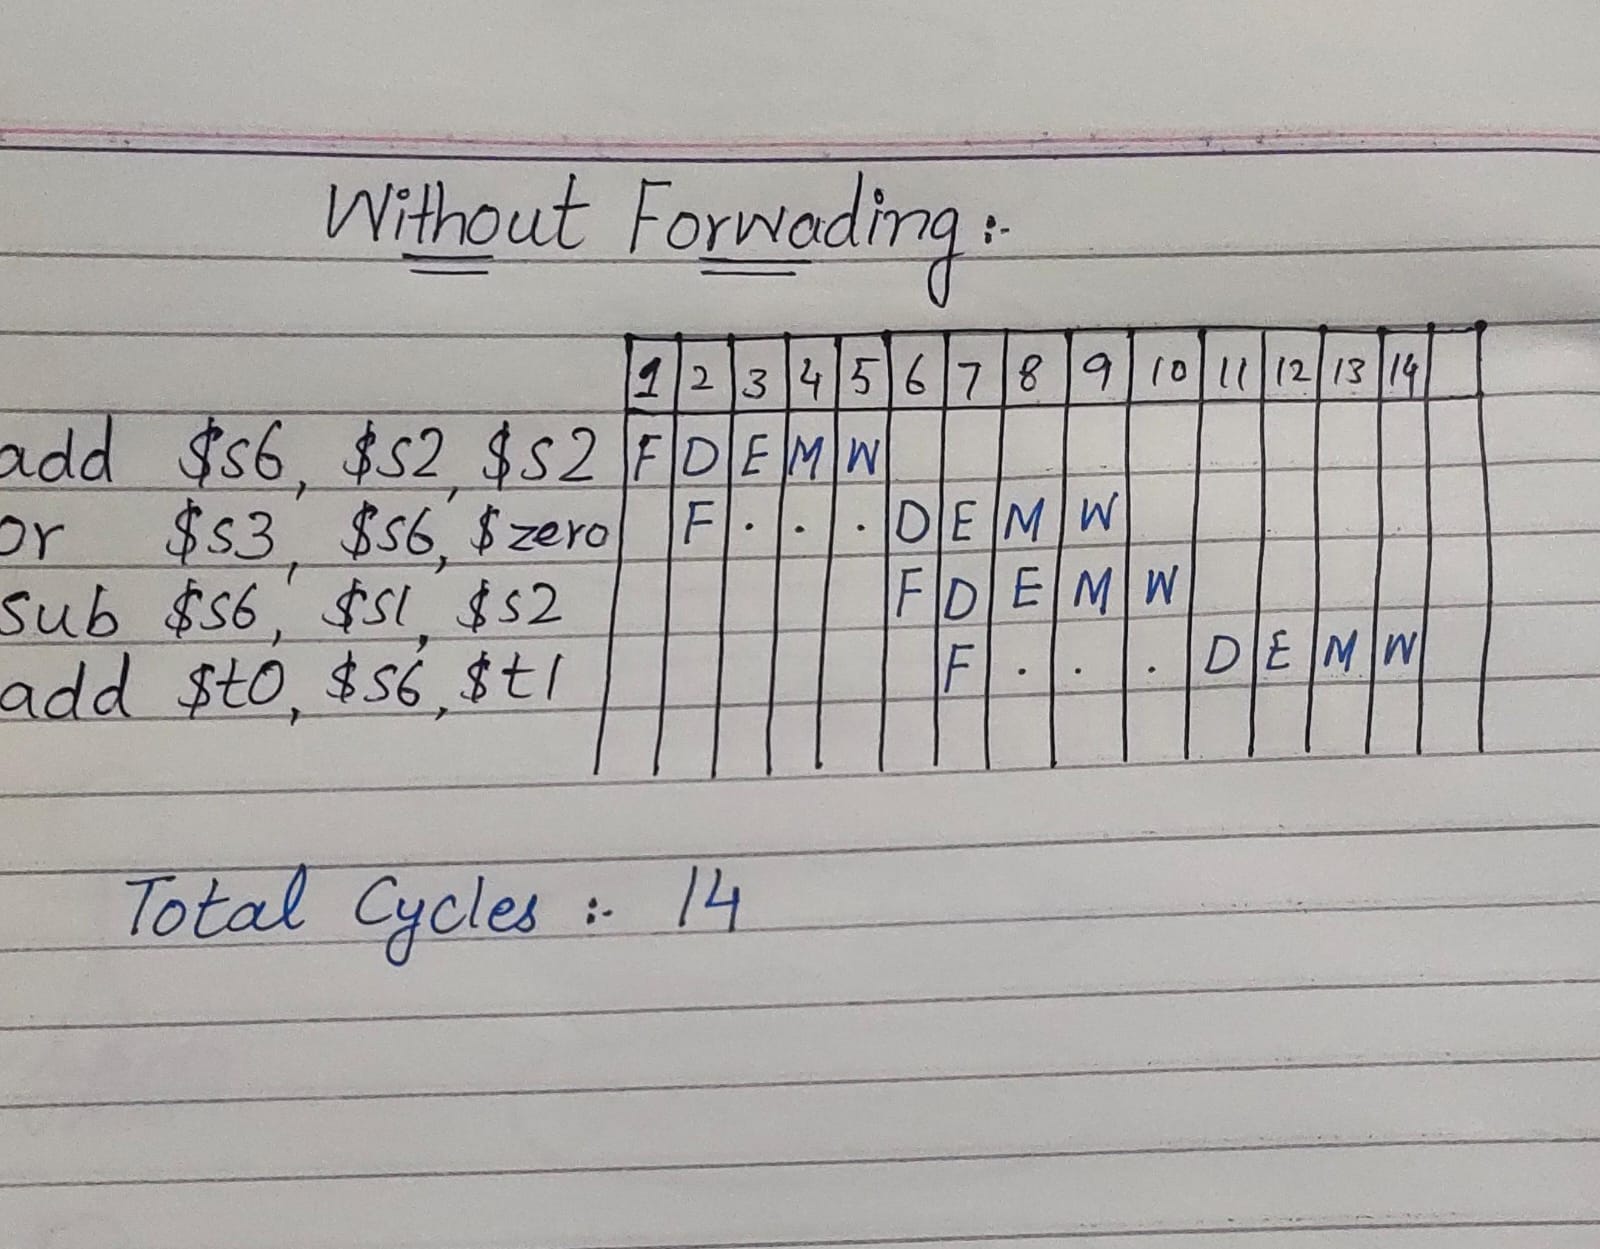 Without Forwading :-
1 2 3 4 5 6 7 8 9 10 11 12 13 14
add $s6, $s2, $s2 F D E M W
or $s3, $s6, $zero F . . . D E M W
sub $s6, $s1, $s2 F D E M W
add $t0, $s6, $t1 F . . . D E M W
Total Cycles :- 14